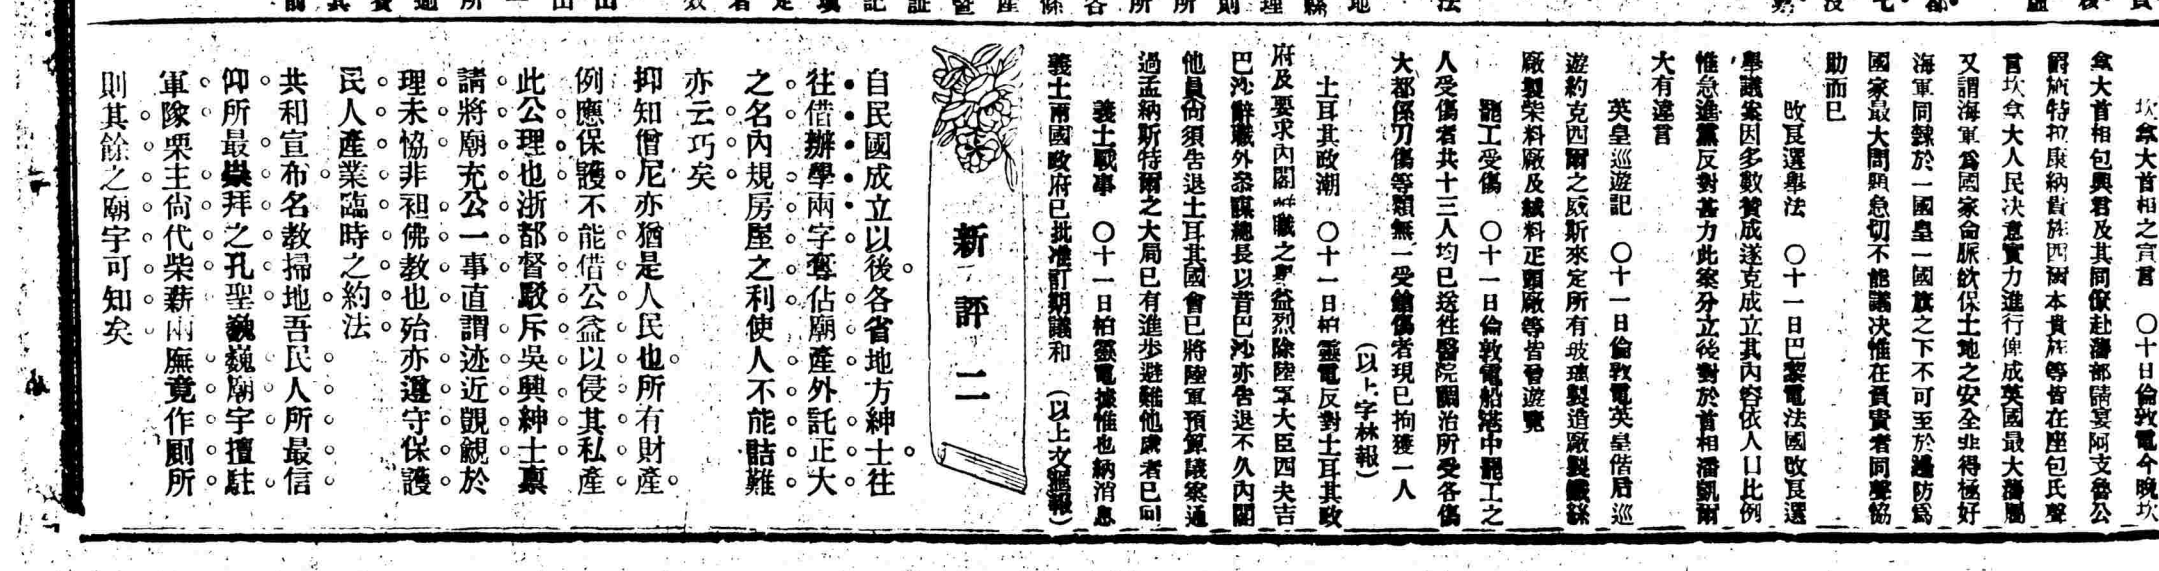 坎拿大首相之宣言　〇十日倫敦電今晚坎
拿大首相包與君及其同僚赴藩部請宴阿支魯公
爵施特拉康納貴族四爾本貴族等皆在座包氏聲
言坎拿大人民决意實力進行俾成英國最大藩屬
又謂海軍爲國家命脈欲保土地之安全非得極好
海軍同隸於一國皇一國旗之下不可至於邊防爲
國家最大問題急切不能議决惟在負責者同聲協
助而已
改良選舉法　〇十一日巴黎電法國改良選
舉議案因多數贊成遂克成立其內容依人口比例
惟急進黨反對甚力此案分立後對於首相潘凱爾
大有違言
英皇巡遊記　〇十一日倫敦電英皇偕后巡
遊約克西爾之威斯來定所有玻璃製造廠製鐵絲
廠製柴料廠及絨料正頭廠等皆曾遊覽
罷工受傷　〇十一日倫敦電船港中罷工之
人受傷者共十三人均已送往醫院調治所受各傷
大都係刀傷等類無一受鎗傷者現已拘獲一人
（以上字林報）
土耳其政潮　〇十一日柏靈電反對土耳其政
府及要求內閣辭職之舉益烈除陸軍大臣西夫吉
巴沙辭職外參謀總長以昔巴沙亦告退不久內閣
他員尙須告退土耳其國會已將陸軍預算議案通
過孟納斯特爾之大局已有進步避難他處者已回
義土戰事　〇十一日柏靈電據惟也納消息
義土兩國政府已批准訂期議和　（以上文滙報）
新評二
自民國成立以後各省地方紳士往
往借辦學兩字奪佔廟產外託正大
之名內規房屋之利使人不能詰難
亦云巧矣
抑知僧尼亦猶是人民也所有財產
例應保護不能借公益以侵其私產
此公理也浙都督駁斥吳興紳士禀
請將廟充公一事直謂迹近覬覦於
理未協非袒佛教也殆亦遵守保護
民人產業臨時之約法
共和宣布名教掃地吾民人所最信
仰所最崇拜之孔聖巍巍廟宇擅駐
軍隊栗主尙代柴薪兩廡竟作厠所
則其餘之廟宇可知矣